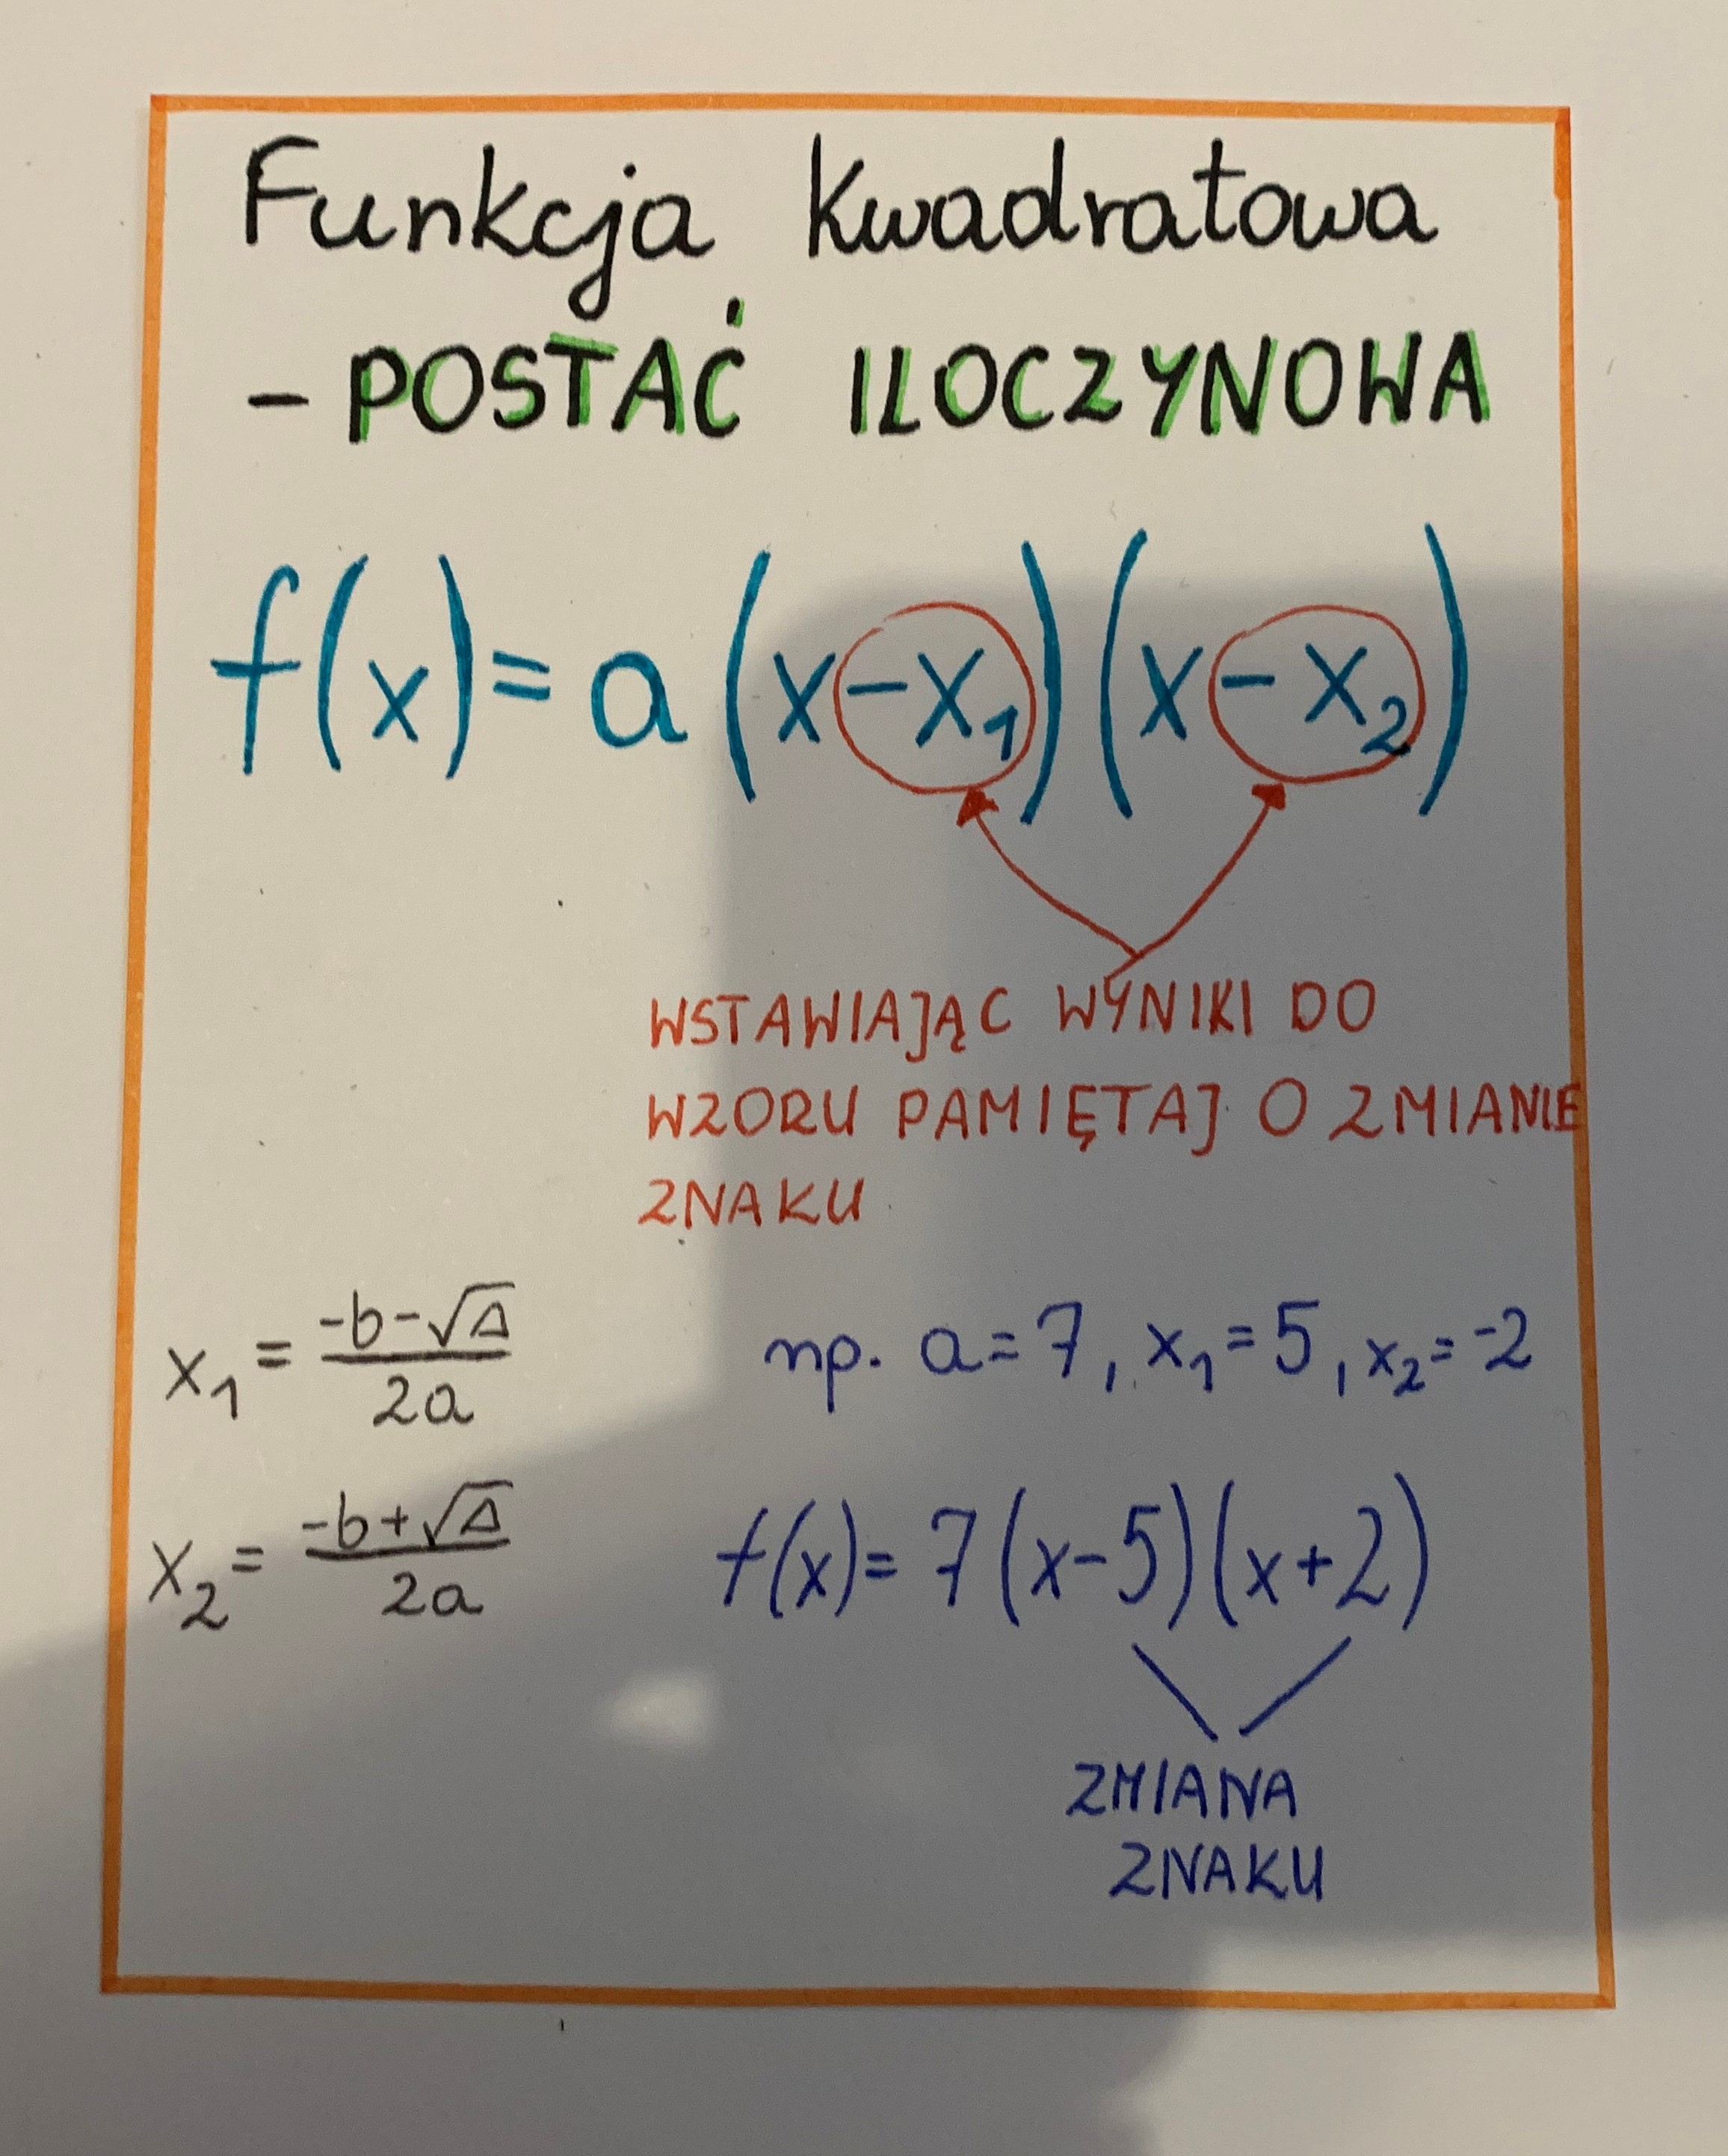 Funkcja kwadratowa
- POSTAĆ ILOCZYNOWA
f(x) = a (x - x₁) (x - x₂)
WSTAWIAJĄC WYNIKI DO
WZORU PAMIĘTAJ O ZMIANIE
ZNAKU
x₁ = (-b-√Δ)/2a
np. a = 7, x₁ = 5, x₂ = -2
x₂ = (-b+√Δ)/2a
f(x) = 7 (x-5) (x+2)
ZMIANA
ZNAKU